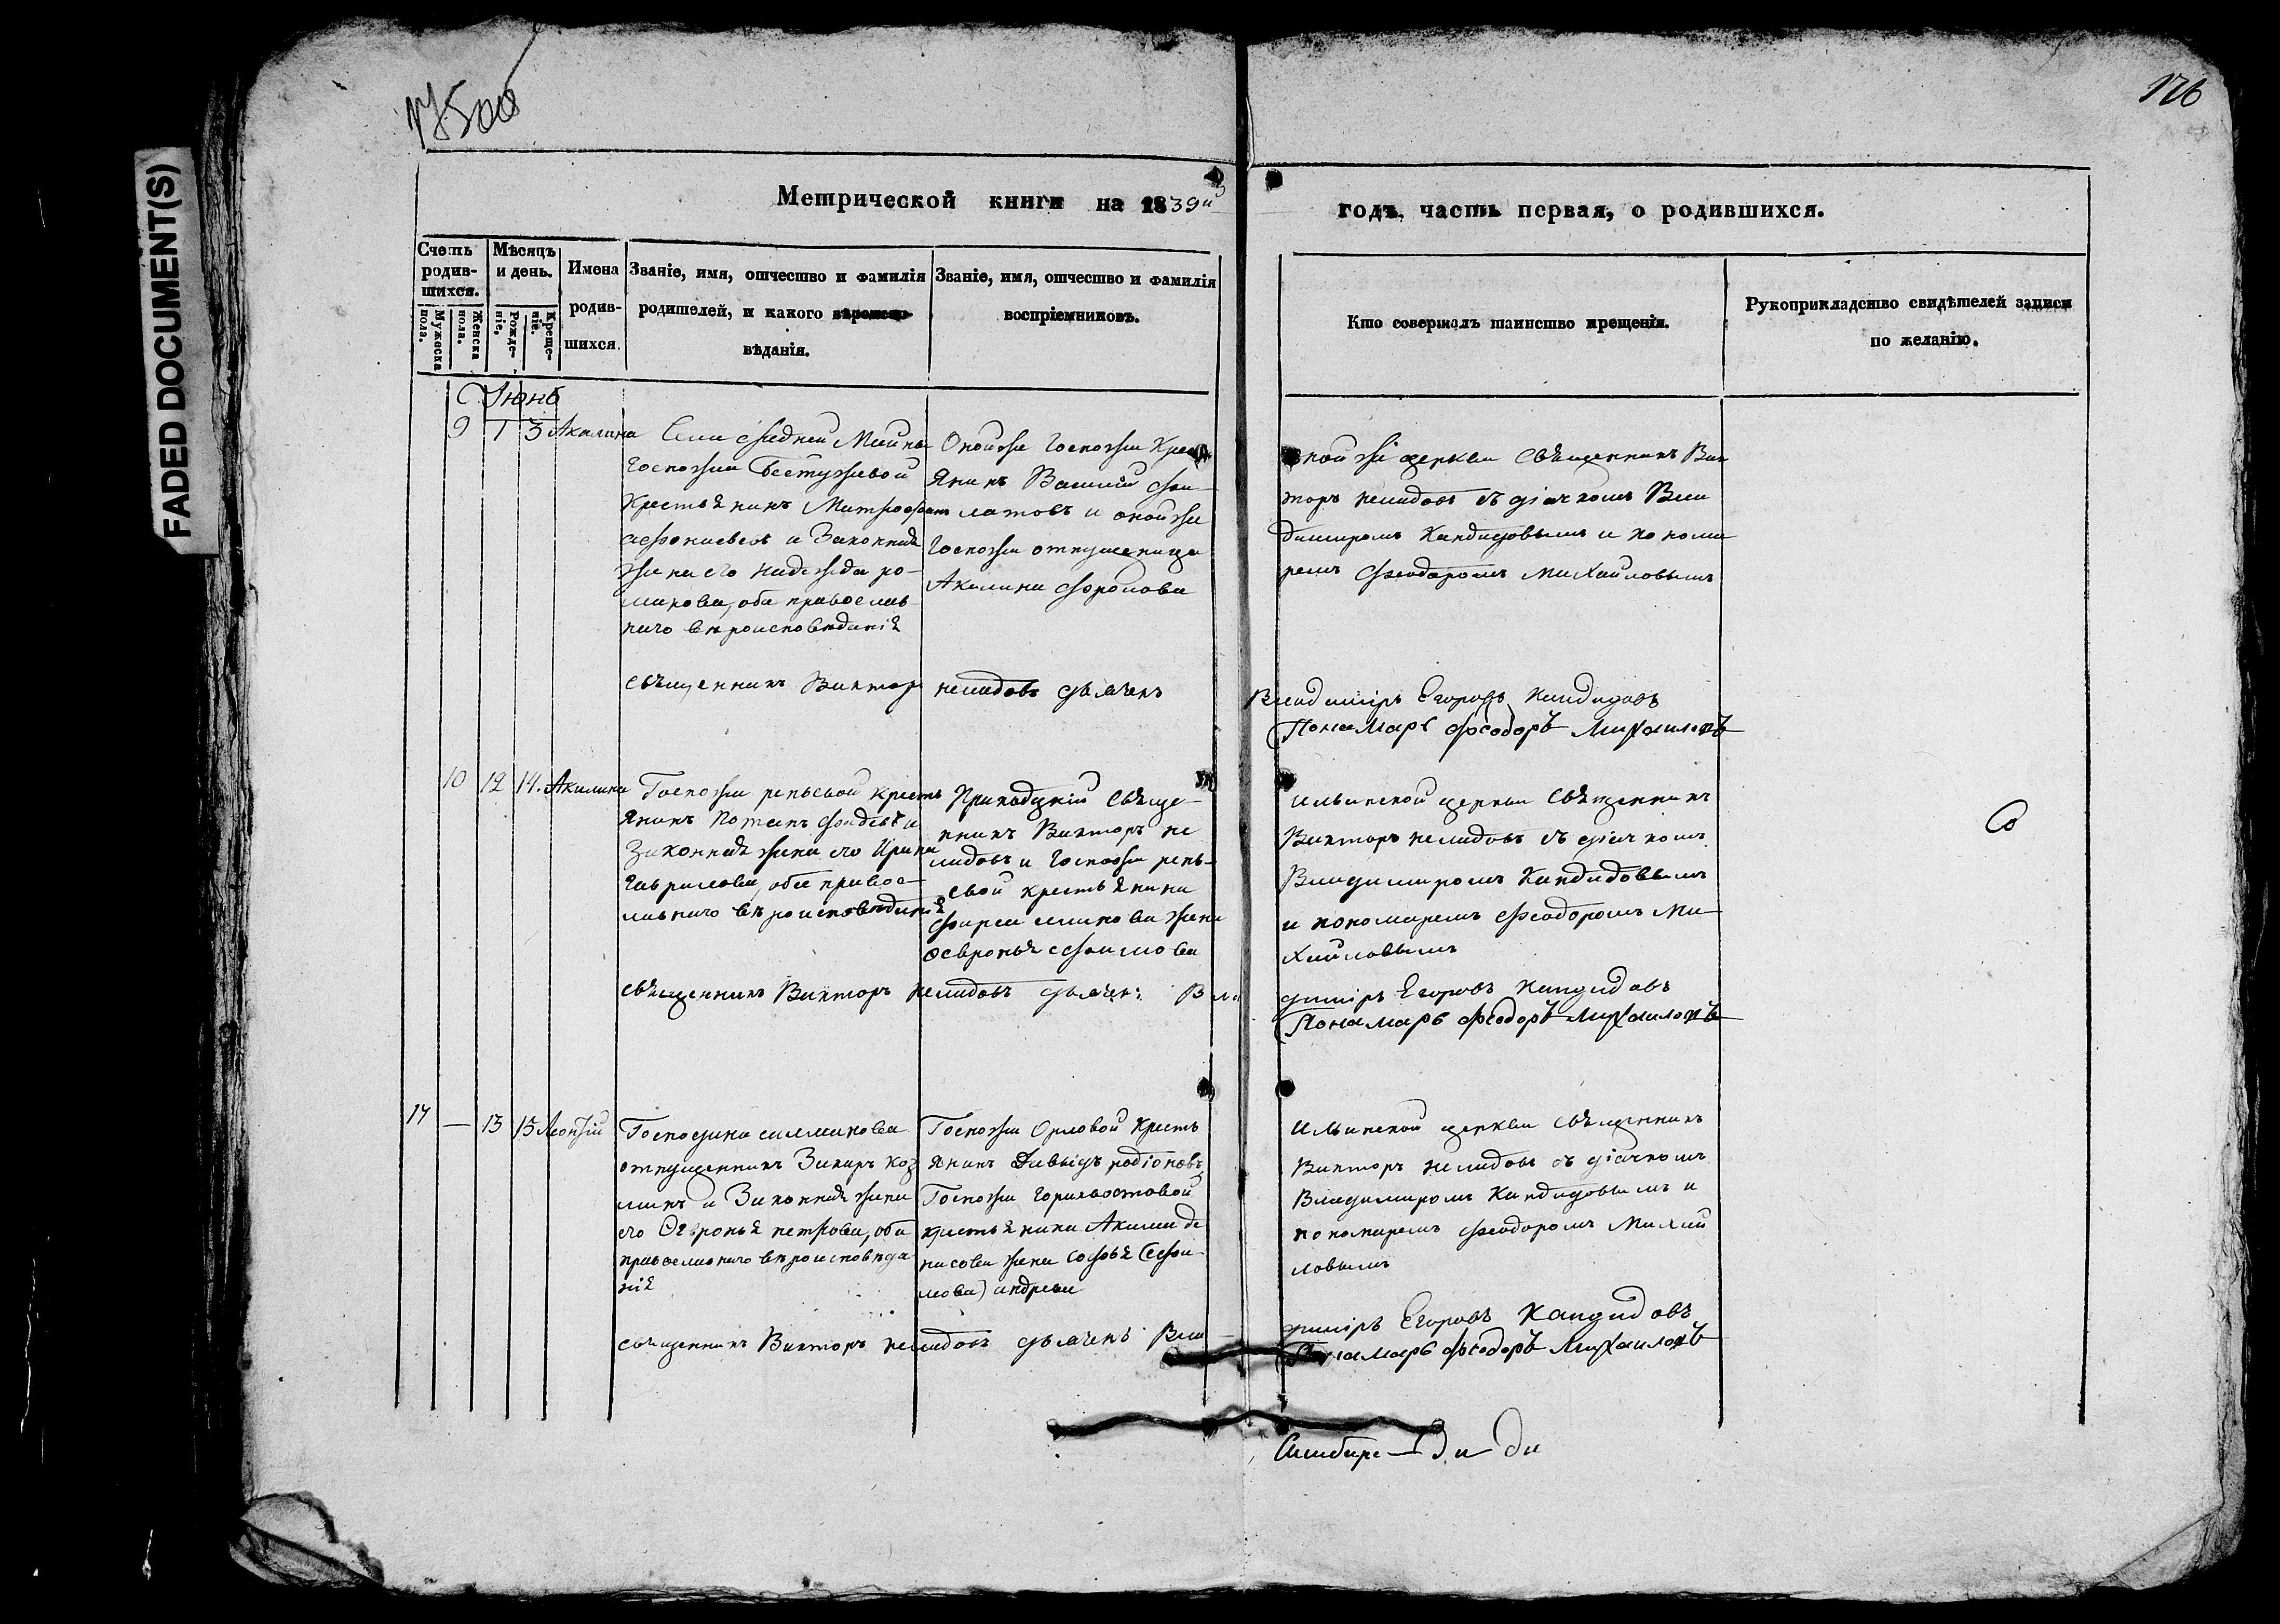 FADED DOCUMENT(S)
176
Метрической книги на 1839й
годъ, часть первая, о родившихся.
Счетъ родив-шихся.
Мужеска пола.
Женска пола.
Мѣсяцъ и день.
Рожде-ніе.
Креще-ніе.
Имена родив-шихся.
Званіе, имя, отчество и фамилія
родителей, и какого вѣроиспо-
вѣданія.
Званіе, имя, отчество и фамилія
воспріемниковъ.
Кто совершалъ таинство крещенія.
Рукоприкладство свидѣтелей записи
по желанію.
Июнь
9 1 3 Акилина
Села средней Маины
Госпожи Бестужевой
Крестьянинъ Митрофанъ
афонасьевъ и Законная
жена его надежда ро-
манова, оба православ-
наго вѣроисповѣданія
Оной же Госпожи Кре
янинъ Василій фи-
латовъ и оной же
Госпожи отпущеница
Акилина фролова
оной же церкви Священникъ Вик
торъ нелидовъ съ діачкомъ Вла
димиромъ Кандидовымъ и понома
ремъ Феодоромъ Михайловымъ
священникъ Викторъ нелидовъ дьячекъ
Владимиръ Егоровъ Кандидовъ
Понамарь Феодоръ Михаиловъ
10 12 14. Акилина
Госпожи репьевой Кресть
янинъ Потапъ фадевъ и
Законная жена его Ирина
Гаврилова, оба правос-
лавнаго вѣроисповѣданія
Приходцкій Свяще-
нникъ Викторъ не
лидовъ и Госпожи репь-
евой крестьянина
жена
Февронья
Ильинской церкви Священникъ
Викторъ нелидовъ съ діачкомъ
Владимиромъ Кандидовымъ
и пономаремъ Феодоромъ Ми-
хайловымъ
священникъ Викторъ нелидовъ дьячекъ Вла
димиръ Егоровъ Кандидовъ
Понамарь Феодоръ Михаиловъ
17 — 13 15 Леонтій
Господина
отпущенникъ Захаръ Коз
минъ и Законная жена
его Февронья петрова, оба
православнаго вѣроисповѣда
нія
Госпожи Орловой Кресть
янинъ Давыдъ родіоновъ
Госпожи Горихвостовой
крестьянина Акима де
нисова жена Софья (
) андрева
Ильинской церкви Священникъ
Викторъ нелидовъ съ діачкомъ
Владимиромъ Кандидовымъ и
пономаремъ Феодоромъ Михай
ловымъ
священникъ Викторъ нелидовъ дьячекъ Вла
димиръ Егоровъ Кандидовъ
Понамарь Феодоръ Михаиловъ